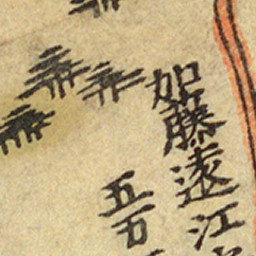 加藤遠江
五百